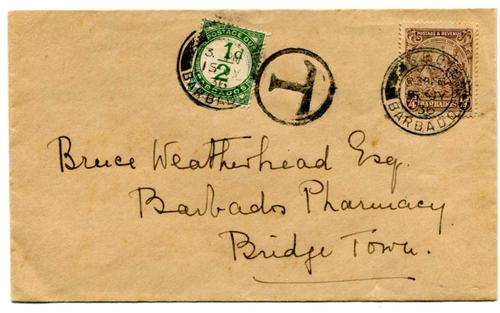 POSTAGE DUE
½d
BARBADOS
T
POSTAGE & REVENUE
BARBADOS
BARBADOS
Bruce Weatherhead Esq.
Barbados Pharmacy
Bridge Town.